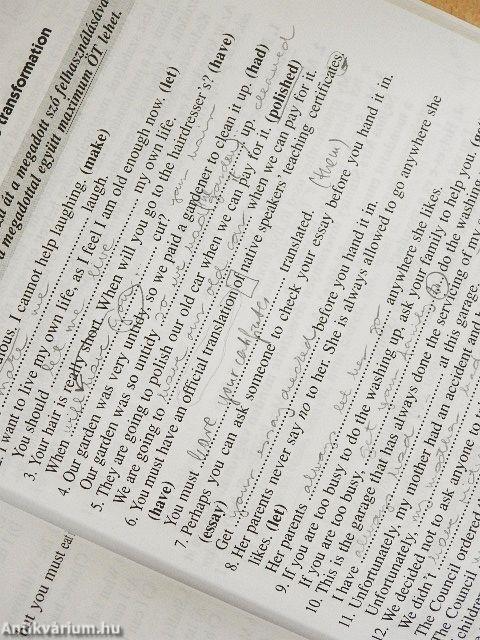 transformation
át a megadott szó felhasználásával
a megadottal együtt maximum ÖT lehet.
I cannot help laughing. (make)
make me laugh.
I want to live my own life, as I feel I am old enough now. (let)
You should let me live my own life.
3. Your hair is really short. When will you go to the hairdresser's? (have)
When will have your hair cut?
4. Our garden was very untidy so we paid a gardener to clean it up. (had)
Our garden was so untidy so we had garden up cleaned
5. They are going to polish our old car when we can pay for it. (polished)
We are going to have our old car when we can pay for it.
6. You must have an official translation of native speakers' teaching certificates.
(have)
You must have your certificates translated.
7. Perhaps you can ask someone to check your essay before you hand it in.
(essay)
Get your essay checked before you hand it in.
8. Her parents never say no to her. She is always allowed to go anywhere she
likes. (let)
Her parents always let her go anywhere she likes.
9. If you are too busy to do the washing up, ask your family to help you.
If you are too busy, get your family do the washing
10. This is the garage that has always done the servicing of my
I have always had at this garage.
11. Unfortunately, my mother had an accident and
Unfortunately, my mother had
12. We decided not to ask anyone to
We didn't have
The Council ordered
The Council
children
t you must eat
Antikvárium.hu